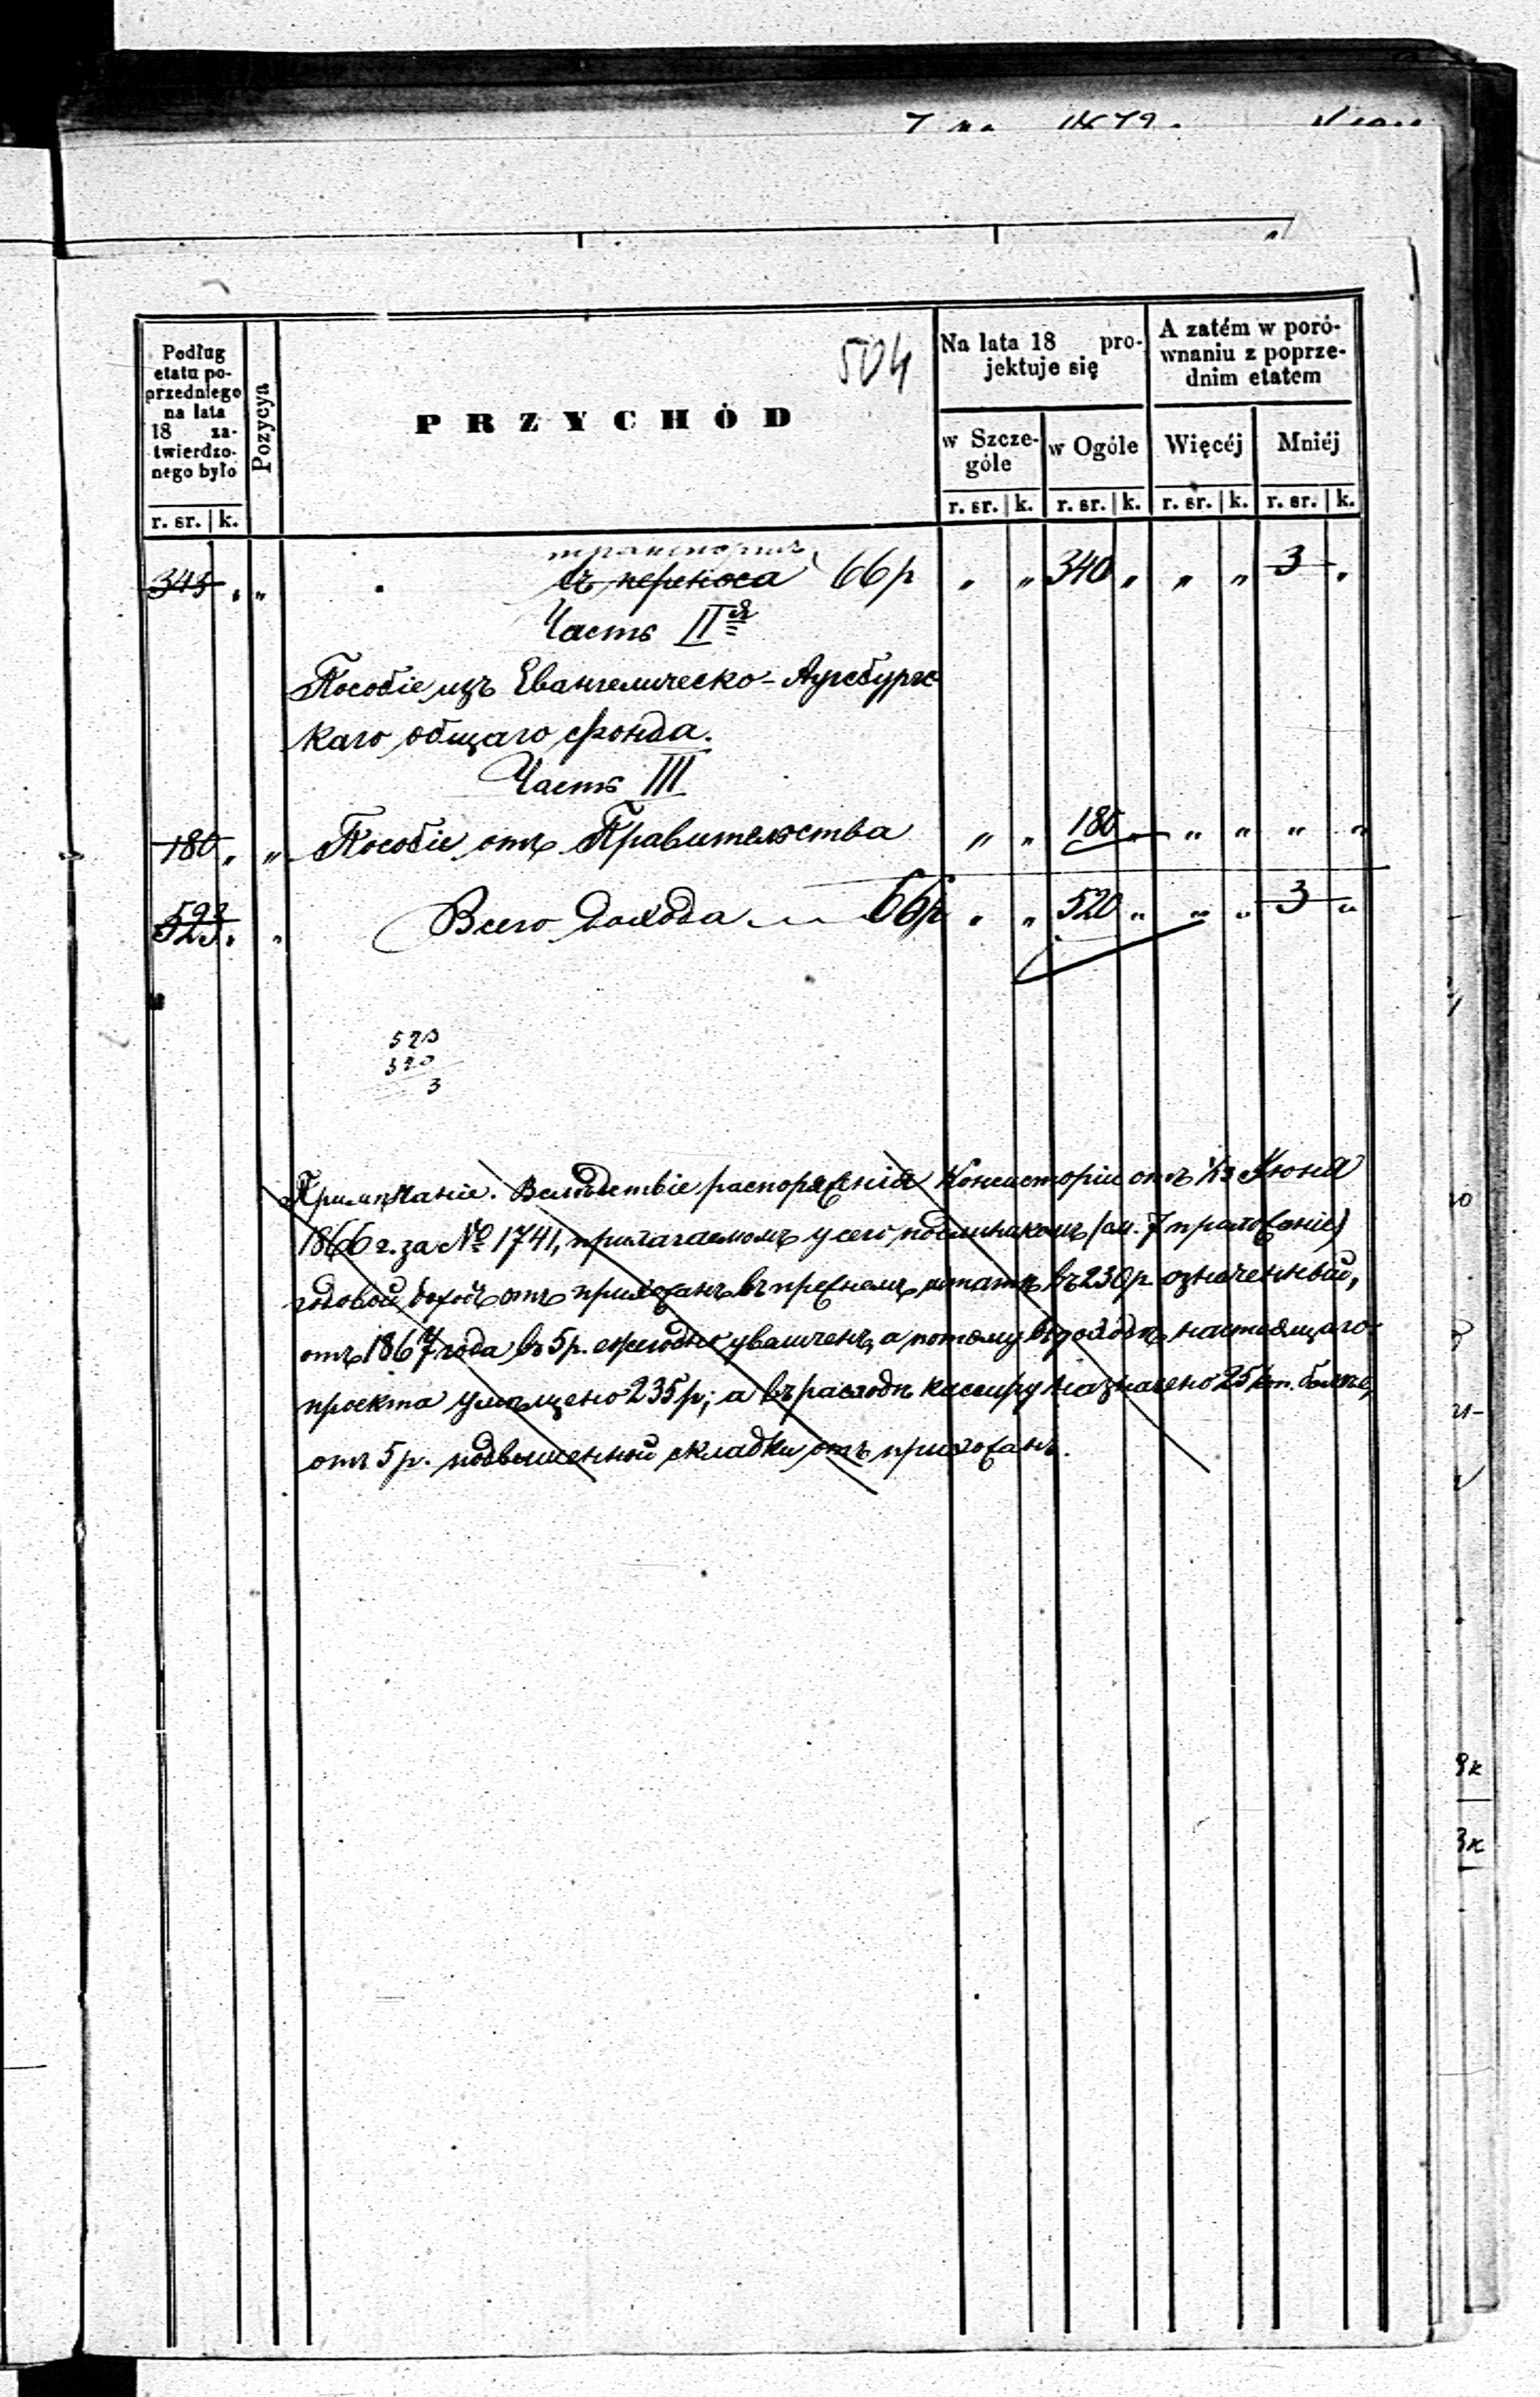 504
Podług
etatu po-
przedniego
na lata
18 za-
twierdzo-
nego było
r. sr. | k.
Pozycya
PRZYCHÓD
Na lata 18 pro-
jektuje się
w Szcze-
góle
w Ogóle
r. sr. | k. r. sr. | k.
A zatém w poró-
wnaniu z poprze-
dnim etatem
Więcéj Mniéj
r. sr. | k. r. sr. | k.
транспортъ
343 „ „ съ переноса 66 р „ „ 340 „ „ „ 3 „
Часть II я
Пособіе изъ Евангелическо-Аугсбургс
каго общаго фонда.
Часть III
180 „ „ Пособіе отъ Правительства „ „ 180 „ „ „ „ „
523 „ „ Всего дохода 66 р „ „ 520 „ „ „ 3 „
523
520
3
Примѣчаніе. Вслѣдствіе распоряженія Консисторіи отъ 1/13 Іюня
1866 г. за № 1741, прилагаемомъ у сего подлинникомъ (см. 7 приложеніе)
годовой доходъ отъ прихожанъ въ прежнемъ штатѣ въ 230 р. означенный,
отъ 1867 года въ 5 р. ежегодно увеличенъ, а потому въ доходѣ настоящаго
проекта умѣщено 235 р; а въ расходѣ кассиру назначено 25 коп. болѣе,
отъ 5 р. подвышенной складки отъ прихожанъ.